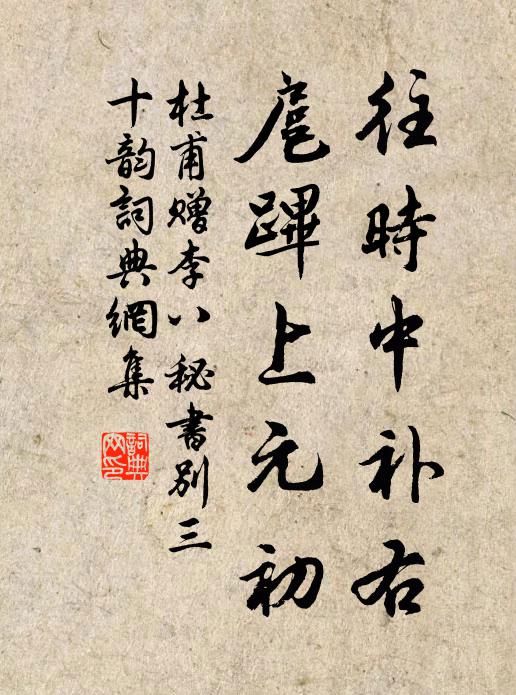 往時中补右
扈蹕上元初
杜甫赠李八秘書别三
十韵詞典網集
詞典网印